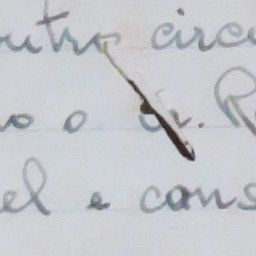 outro circu
no o Sr. R
el e cons